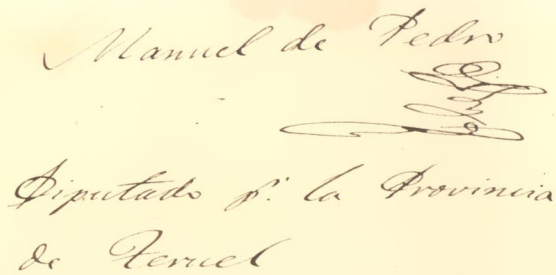 Manuel de Pedro
Diputado p.r la Provincia
de Teruel